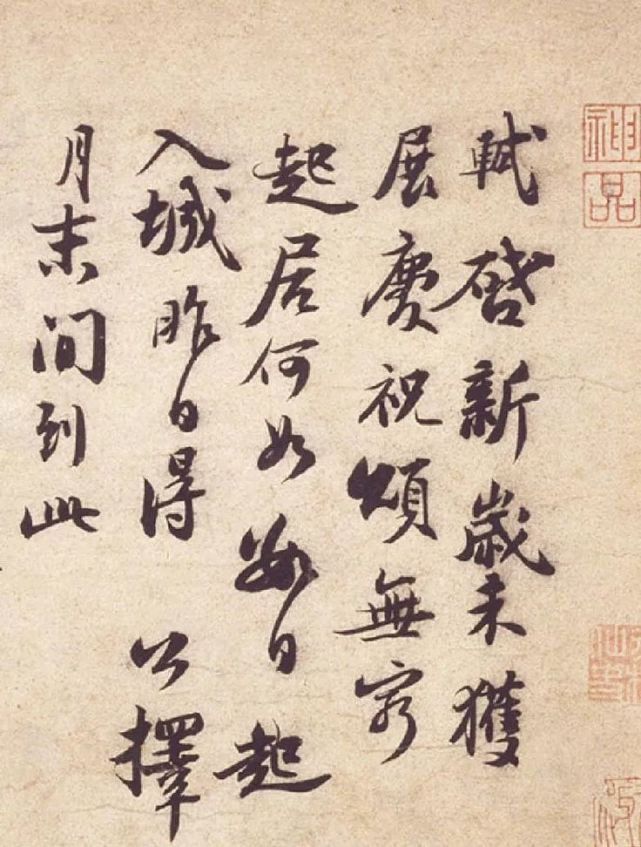 神品
軾啓新歲未獲
展慶祝頌無窮
起居何如數日起
入城昨日得 公擇
月末間到此